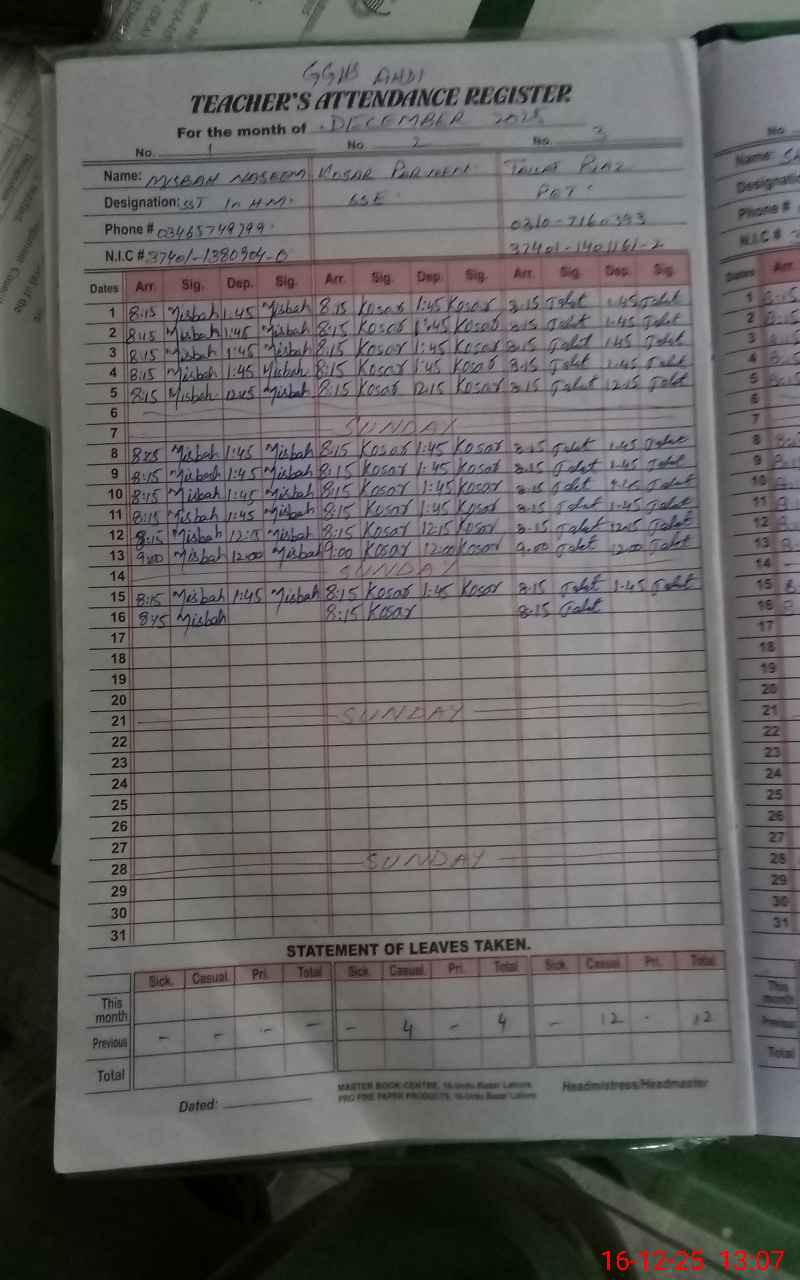 GGHS AHDI
TEACHER'S ATTENDANCE REGISTER
For the month of DECEMBER 2025
No. 1 No. 2 No. 3
Name: MISBAH NASEEM KOSAR PARVEEN
Designation: SST In HM. SSE. PET
Phone # 03465749299 0310-7160393
N.I.C # 37401-1380904-0 37401-1401161-2
Dates Arr. Sig. Dep. Sig. Arr. Sig. Dep. Sig. Arr. Sig. Dep. Sig.
1 8:15 Misbah 1:45 Misbah 8:15 Kosar 1:45 Kosar 8:15 Talat 1:45 Talat
2 8:15 Misbah 1:45 Misbah 8:15 Kosar 1:45 Kosar 8:15 Talat 1:45 Talat
3 8:15 Misbah 1:45 Misbah 8:15 Kosar 1:45 Kosar 8:15 Talat 1:45 Talat
4 8:15 Misbah 1:45 Misbah 8:15 Kosar 1:45 Kosar 8:15 Talat 1:45 Talat
5 8:15 Misbah 12:15 Misbah 8:15 Kosar 12:15 Kosar 8:15 Talat 12:15 Talat
6
7 SUNDAY
8 8:15 Misbah 1:45 Misbah 8:15 Kosar 1:45 Kosar 8:15 Talat 1:45 Talat
9 8:15 Misbah 1:45 Misbah 8:15 Kosar 1:45 Kosar 8:15 Talat 1:45 Talat
10 8:15 Misbah 1:45 Misbah 8:15 Kosar 1:45 Kosar 8:15 Talat Talat
11 8:15 Misbah 1:45 Misbah 8:15 Kosar 1:45 Kosar 8:15 Talat 1:45 Talat
12 8:15 Misbah 12:15 Misbah 8:15 Kosar 12:15 Kosar 8:15 Talat 12:15 Talat
13 9:00 Misbah 12:00 Misbah 9:00 Kosar 12:00 Kosar 9:00 Talat 12:00 Talat
14 SUNDAY
15 8:15 Misbah 1:45 Misbah 8:15 Kosar 1:45 Kosar 8:15 Talat 1:45 Talat
16 8:15 Misbah 8:15 Kosar 8:15 Talat
17
18
19
20
21 SUNDAY
22
23
24
25
26
27
28 SUNDAY
29
30
31
STATEMENT OF LEAVES TAKEN.
Sick. Casual. Pri. Total Sick. Casual Pri. Total Sick. Casual Pri. Total
This month
Previous - - - - - 4 - 4 - 12 - 12
Total
Dated: MASTER BOOK CENTRE, 16-Urdu Bazar Lahore Headmistress/Headmaster
PRO FINE PAPER PRODUCTS, 16-Urdu Bazar Lahore
16-12-25 13:07